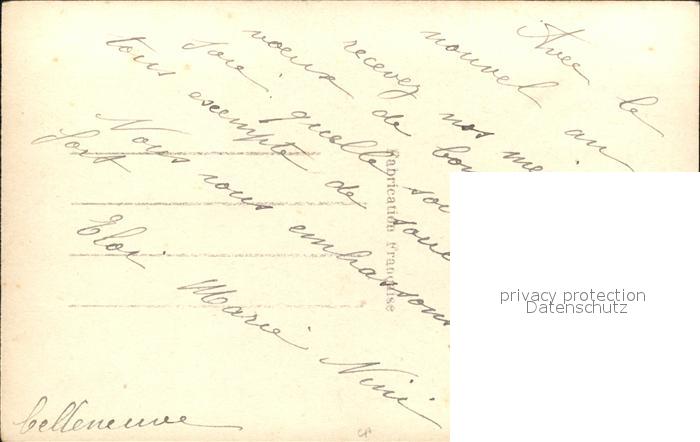 Avec le
nouvel an
recevez nos me
voeux de bon
Soie quelle soi
tous exempte de souc
Nous vous embrassons
fort
Eloi Marie Nini
Belleneuve
Fabrication Française
privacy protection
Datenschutz